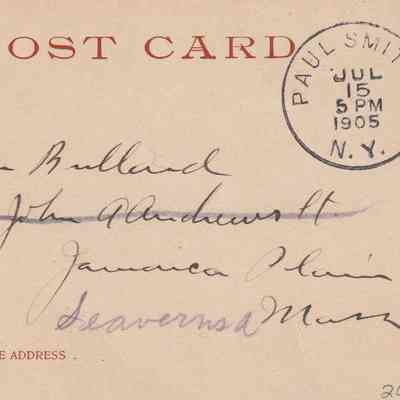 OST CARD
PAUL SMIT
JUL
15
5 PM
1905
N.Y.
Bullard
John A Andrews St.
Jamaica Plain
Seaverns
Mass
E ADDRESS .